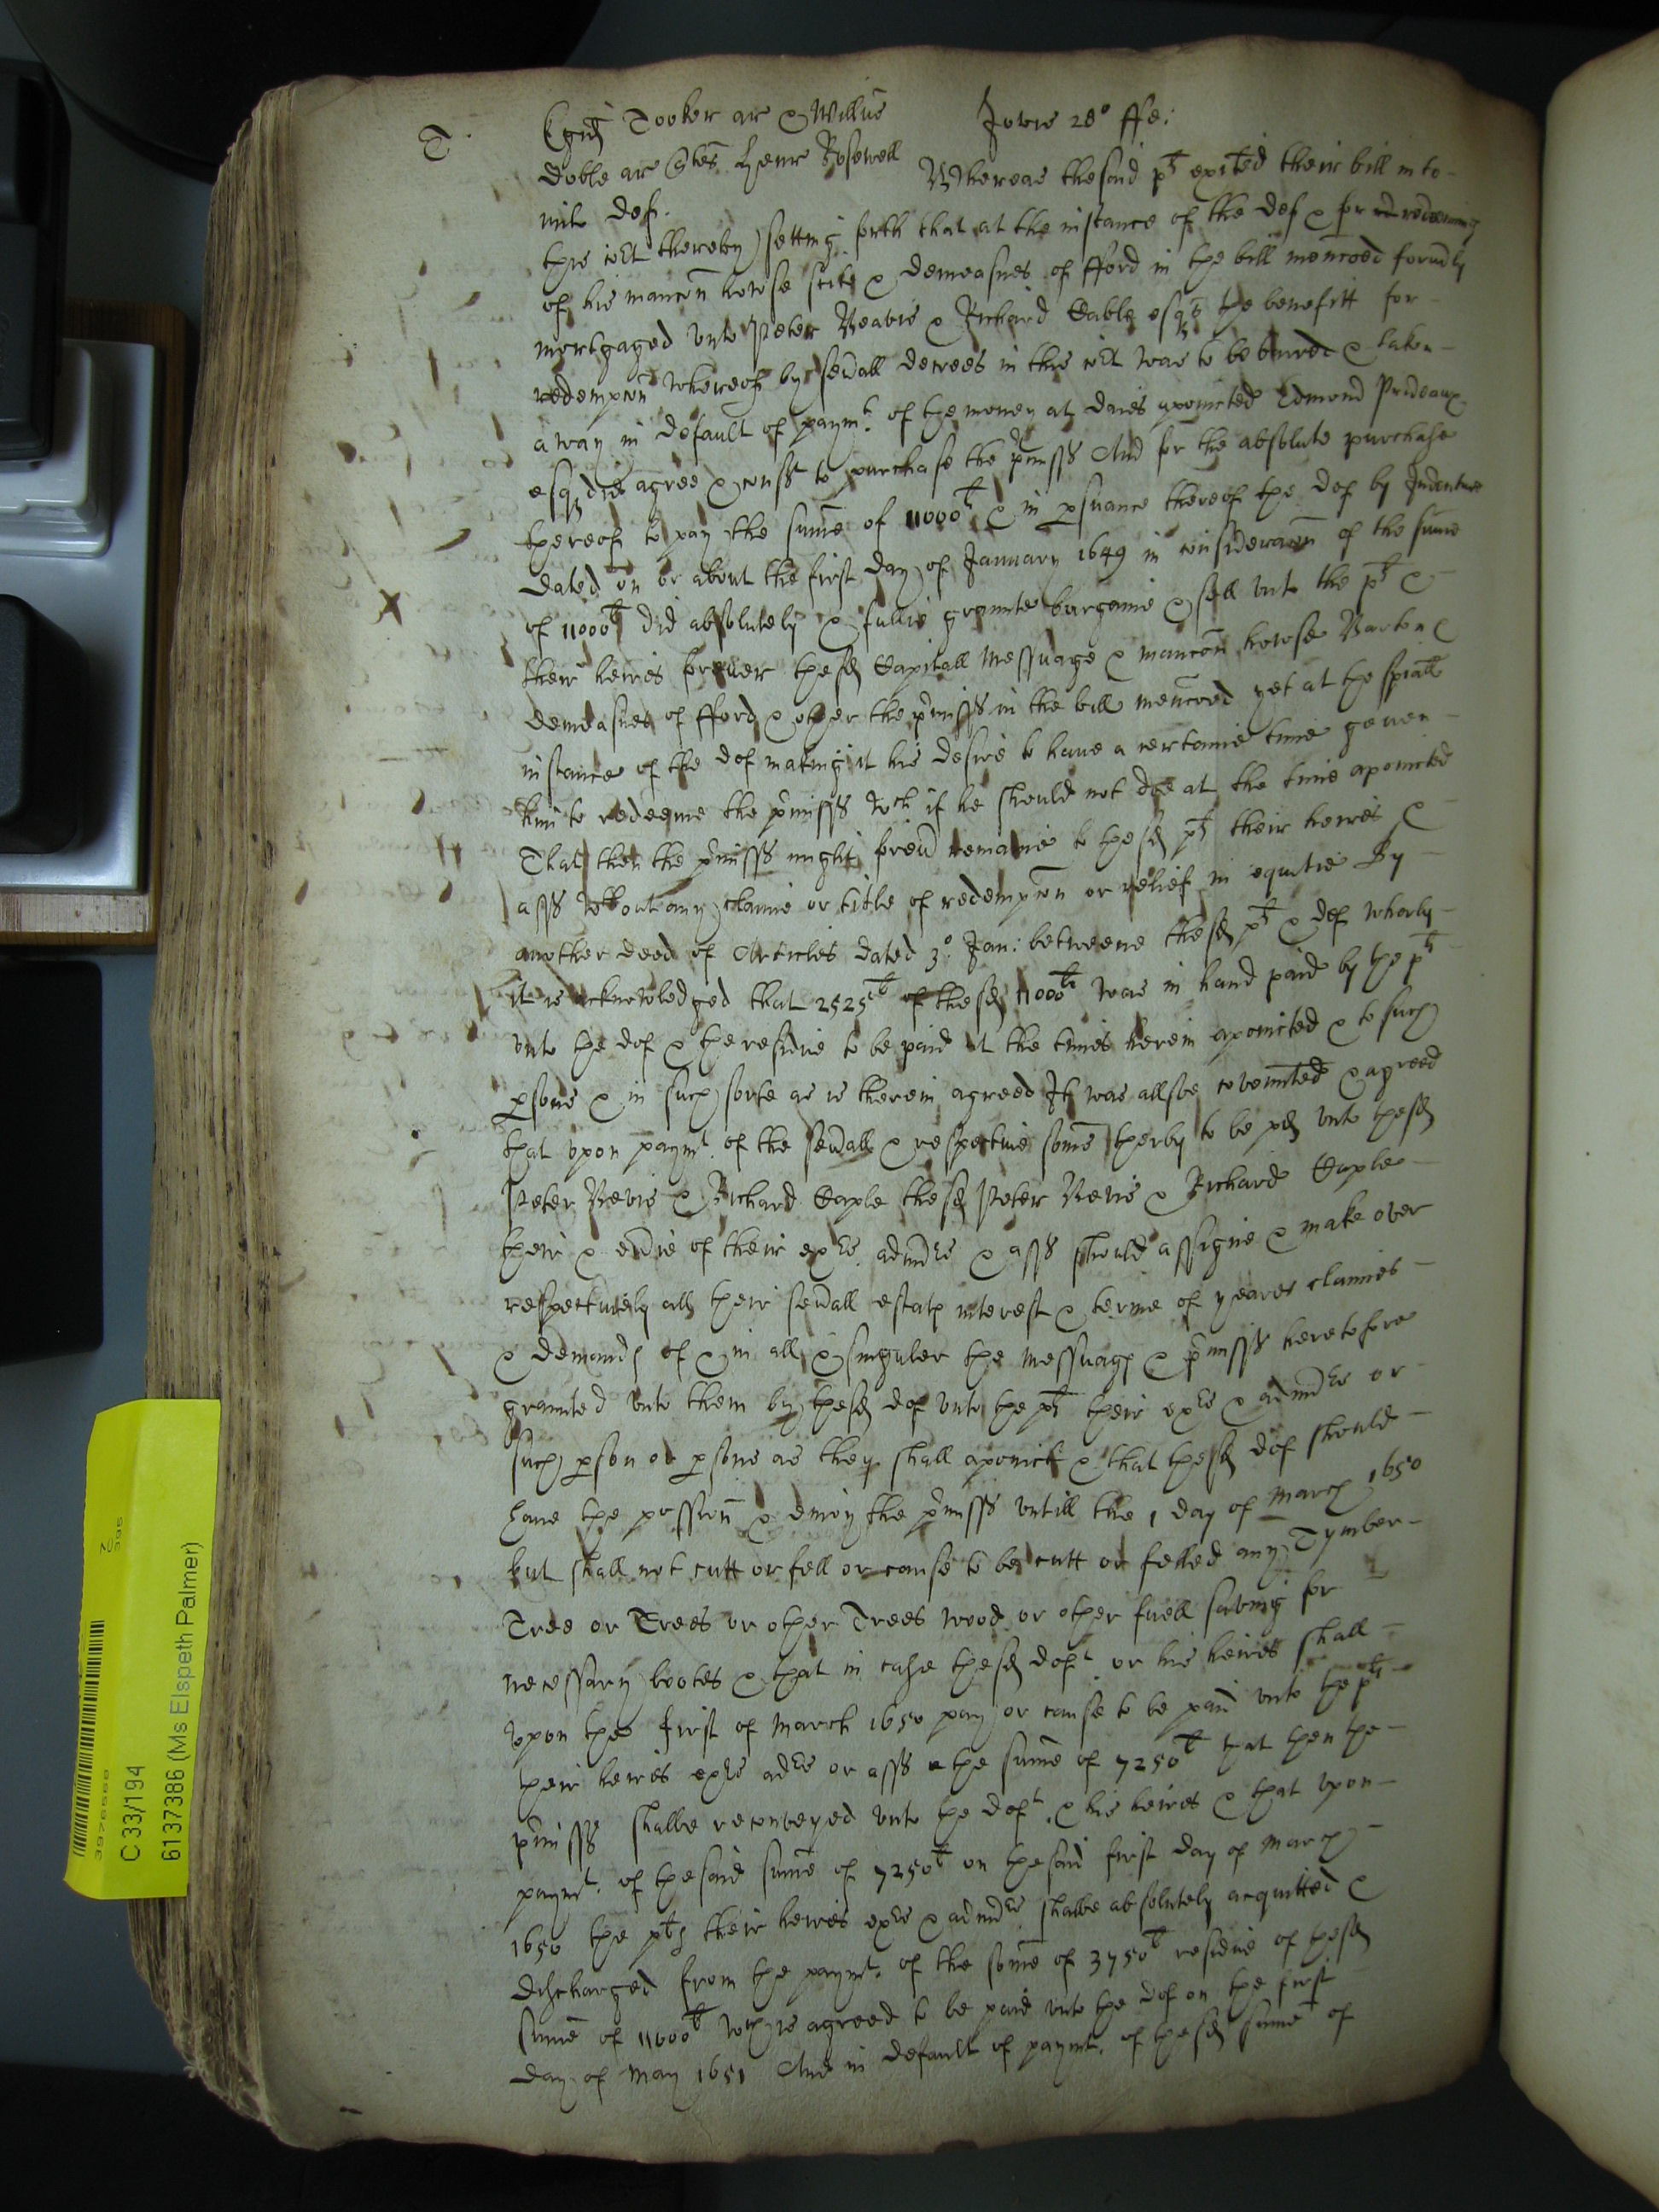 T
Egid Tooker ar & Willm̄ Jovis 28° ffe:
Doble ar Henr Rosewell Whereas the said pts exited their bill into
mil def.
this Cort thereby setting forth that at the instance of the def & for redeeming
of his mancon howse scite & demeasnes of fford in the bill menc̄oed form̄ly
mortgaged unto Peter Beavis & Richard Cable esqs the benefitt for
redempcon whereof by sev̄all decrees in this Cort was to be barred & taken
away in default of paymt. of the money at daies apointed Edmond Prideaux
esq did agree & to purchase the p̄miss And for the absolute purchase
thereof to pay the sum̄e of 11000l & in psuance thereof the def by Indenture
Dated on or about the first day of January 1649 in consideracon of the sum̄e
of 11000l did absolutely & fullie graunte bargaine & sell unto the pts &
their heires forever the sd Capitall Messuage & mancon howse Barton &
demeasnes of fford & other the p̄misss in the bill menc̄oed yet at the spiall
instance of the def making it his desire to have a certaine time geven
him to redeeme the p̄misss wch if he should not doe at the time apointed
That then the p̄misss might forev̄ remaine to the sd pts their heires &
asss wthout any claime or title of redempcon or relief in equitie By
another deed of Articles dated 3°. Jan: betweene the sd pts & def wherby
it is acknowledged that 2525l of the sd 11000l was in hand paid by the pts
unto the def & the residue to be paid at the times therein apointed & to such
psons & in such sorte as is therein agreed It was allsoe covennted & agreed
that upon paymt. of the sev̄all & respective som̄e therby to be pd unto the sd
Peter Bevis & Richard Caple the sd Peter Bevis & Richard Caple
their & ev̄ie of their exrs. admrs & asss should assigne & make over
respectively all their sev̄all estate interest & terme of yeares claimes
& demands of & in all & singuler the messuags & p̄misss heretofore
graunted unto them by the sd def unto the pts their exrs & admrs or
such pson or psons as they shall apoint & that the sd def should
have the possion & enioy the p̄misss untill the 1 day of March 1650
but shall not cutt or fell or cause to be cutt or felled any Tymber
Tree or Trees or other Trees wood or other fuell saving for
necessary bootes & that in case the sd deft. or his heires shall
upon the first of March 1650 pay or cause to be paid unto the pts
their heires exrs adrs or asss the sum̄e of 7250l that then the
p̄misss shalbe reconveyed unto the deft. & his heires & that upon
paymt. of the said sum̄e of 7250l on the said first day of March
1650 the plts their heires exrs & admrs. shalbe absolutely acquitted &
discharged from the paymt. of the som̄e of 3750l residue of the sd
sum̄e of 11000l wch is agreed to be paid unto the def on the first
day of May 1651 And in default of paymt. of the sd sum̄e of
39765568
C 33/194
6137386 (Ms Elspeth Palmer)